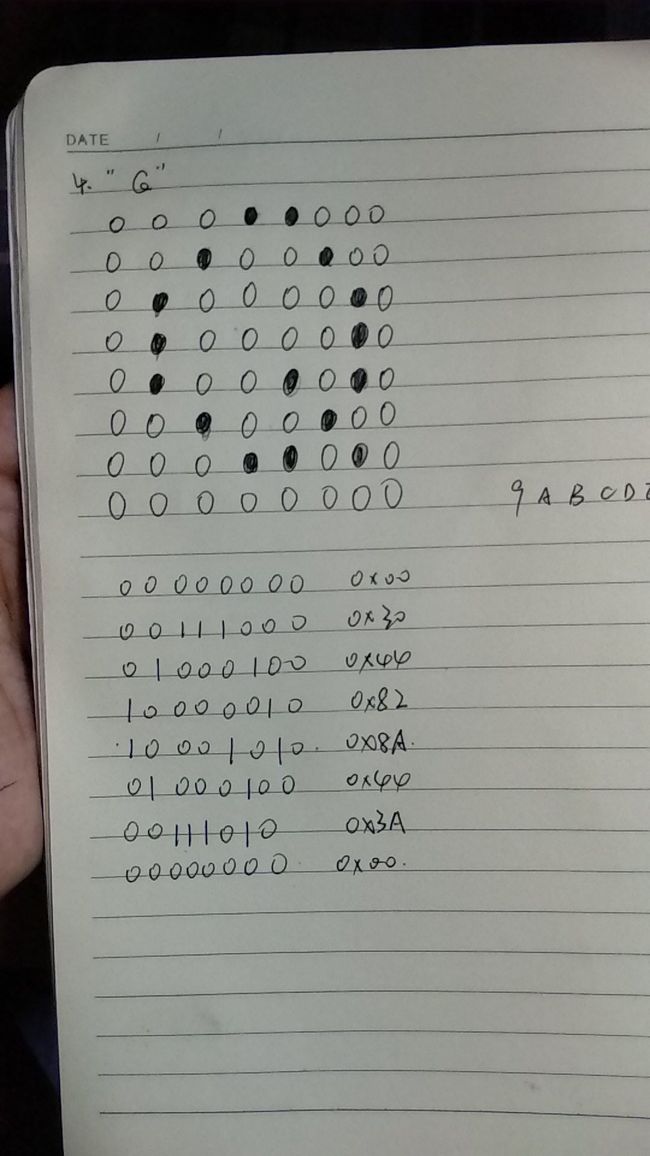 DATE / /
4. "G"
0 0 0 ● ● 0 0 0
0 0 ● 0 0 ● 0 0
0 ● 0 0 0 0 ● 0
0 ● 0 0 0 0 ● 0
0 ● 0 0 ● 0 ● 0
0 0 ● 0 0 ● 0 0
0 0 0 ● ● 0 ● 0
0 0 0 0 0 0 0 0
9 A B C D E
0 0 0 0 0 0 0 0 0x00
0 0 1 1 1 0 0 0 0x30
0 1 0 0 0 1 0 0 0x44
1 0 0 0 0 0 1 0 0x82
1 0 0 0 1 0 1 0. 0x8A.
0 1 0 0 0 1 0 0 0x44
0 0 1 1 1 0 1 0 0x3A
0 0 0 0 0 0 0 0 0x00.